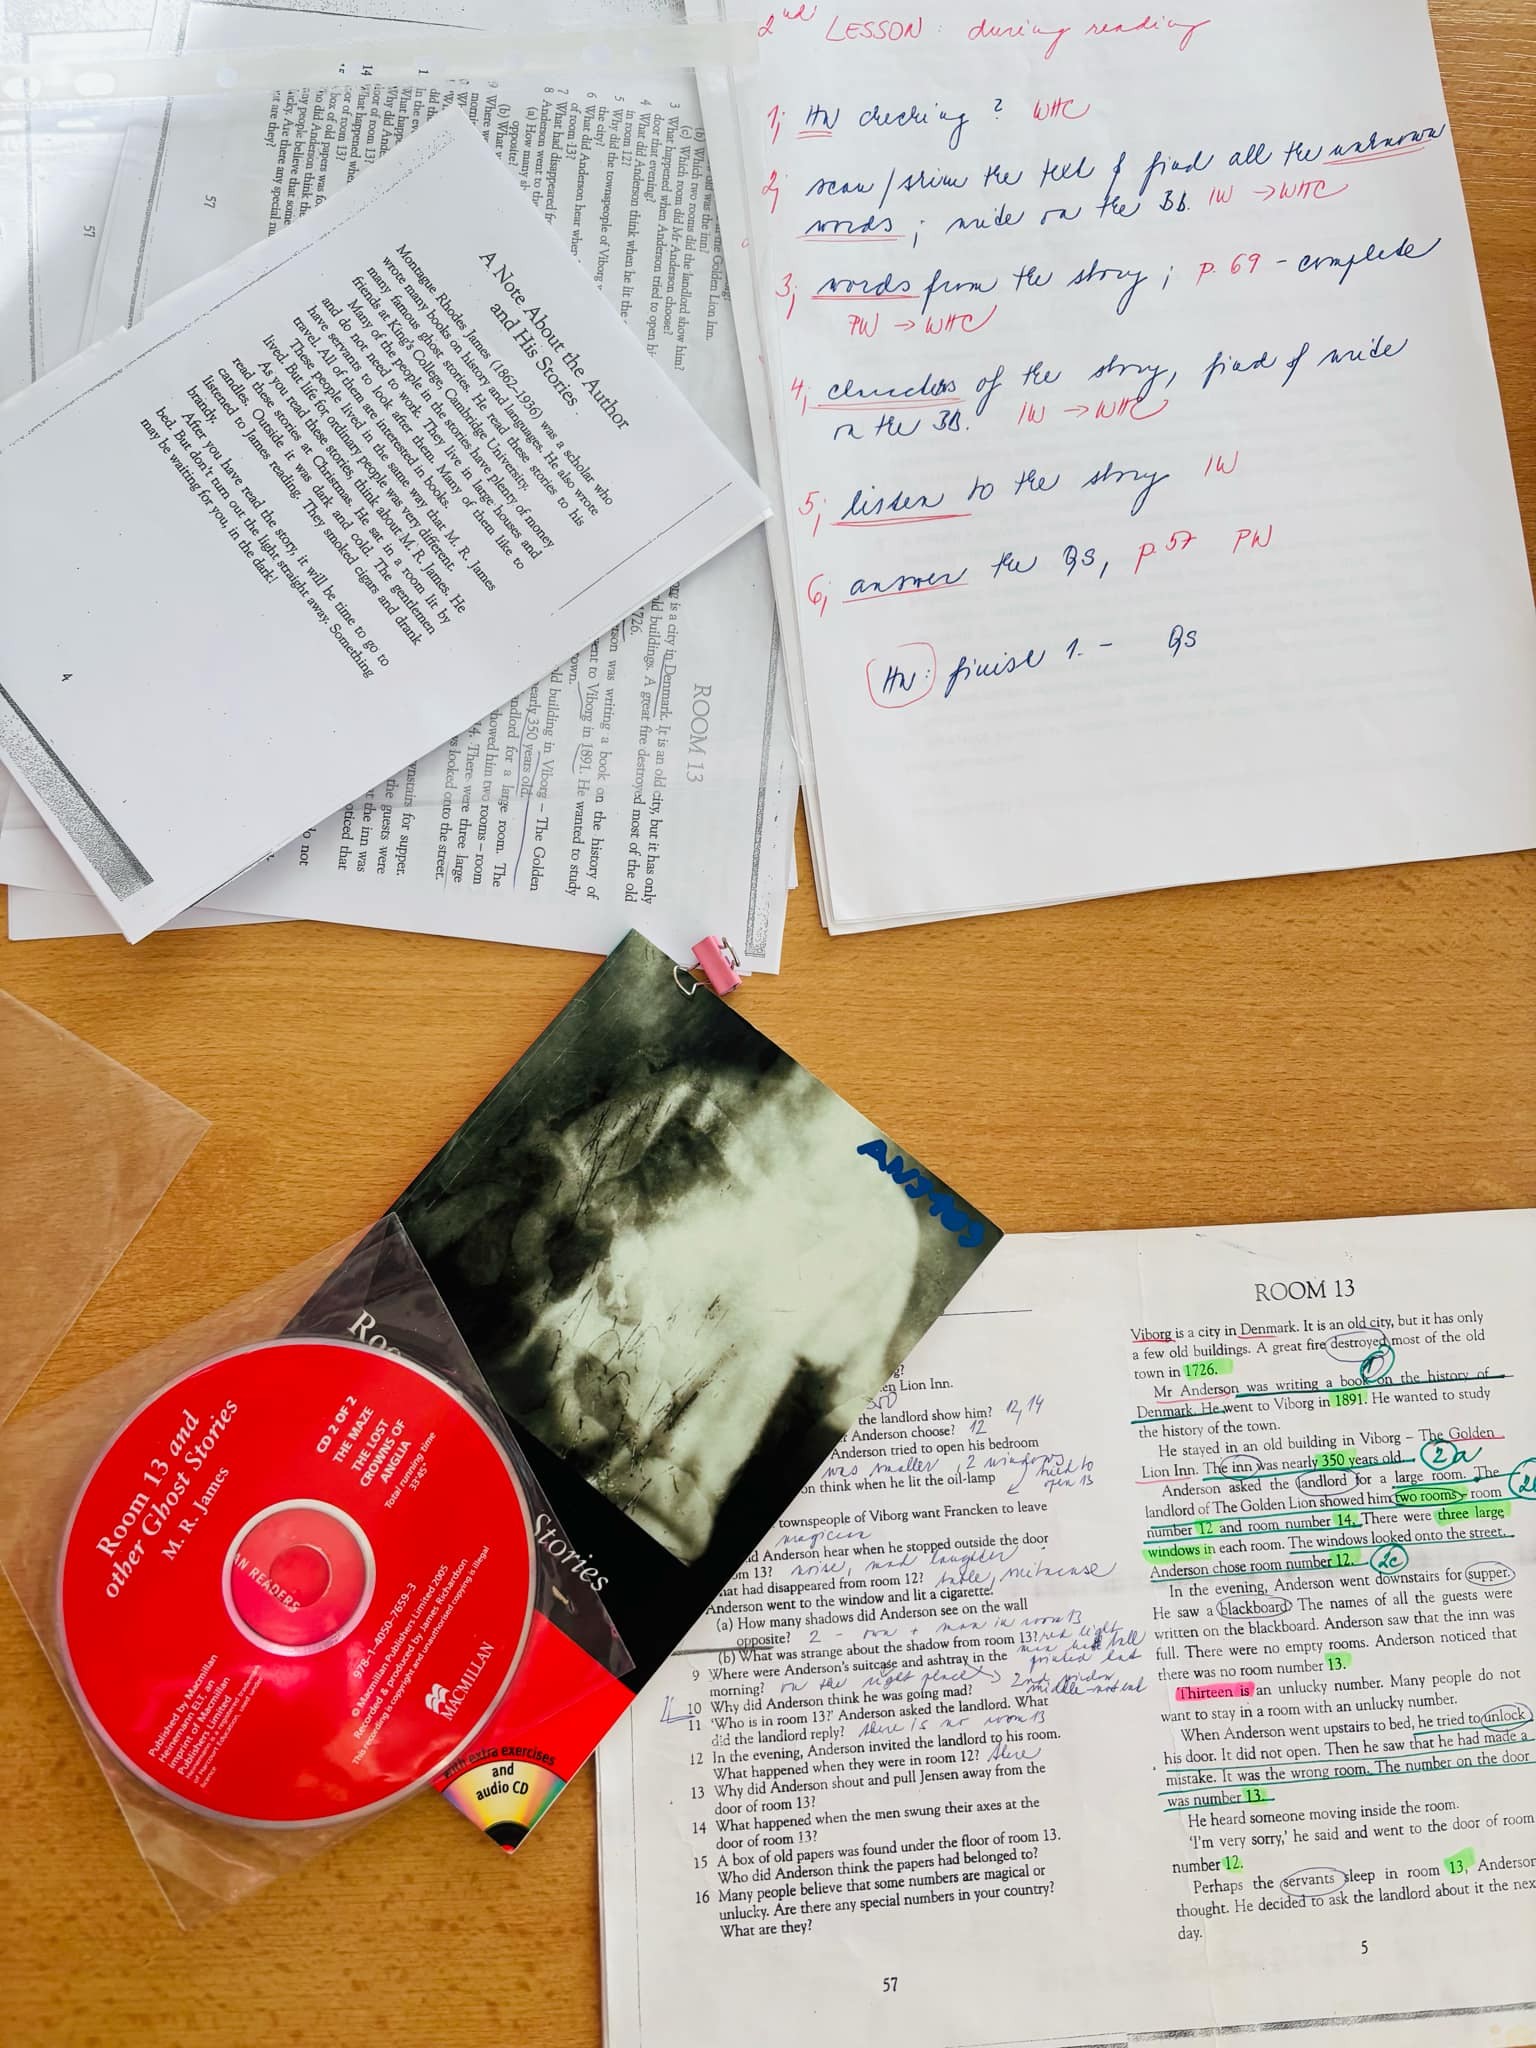 2nd LESSON: during reading
1; HW checking? WHC
2; scan/skim the text & find all the unknown
words; write on the BB. IW → WHC
3; words from the story; p. 69 - complete
PW → WHC
4; characters of the story, find & write
on the BB. IW → WHC
5; listen to the story IW
6; answer the QS, p. 57 PW
HW: finish 1. - QS
A Note About the Author
and His Stories
Montague Rhodes James (1862-1936) was a scholar who
wrote many books on history and languages. He also wrote
many famous ghost stories. He read these stories to his
friends at King's College, Cambridge University.
Many of the people in the stories have plenty of money
and do not need to work. They live in large houses and
have servants to look after them. Many of them like to
travel. All of them are interested in books.
These people lived in the same way that M. R. James
lived. But life for ordinary people was very different.
As you read these stories, think about M. R. James. He
read these stories at Christmas. He sat in a room lit by
candles. Outside it was dark and cold. The gentlemen
listened to James reading. They smoked cigars and drank
brandy.
After you have read the story, it will be time to go to
bed. But don't turn out the light straight away. Something
may be waiting for you, in the dark!
4
the Golden Lion Inn.
old was the inn?
(b) Which two rooms did the landlord show him?
(c) Which room did Mr Anderson choose?
3 What happened when Anderson tried to open his
door that evening?
4 What did Anderson think when he lit the
in room 12?
5 Why did the townspeople of Viborg
the city?
6 What did Anderson hear when
of room 13?
7 What had disappeared
8 Anderson went to the
(a) How many sh
opposite?
(b) What w
9 Where w
57
57
ROOM 13
is a city in Denmark. It is an old city, but it has only
old buildings. A great fire destroyed most of the old
1726.
was writing a book on the history of
to Viborg in 1891. He wanted to study
town.
old building in Viborg – The Golden
nearly 350 years old.
landlord for a large room. The
showed him two rooms – room
14. There were three large
looked onto the street.
downstairs for supper.
the guests were
the inn was
noticed that
do not
ANSWERS
Stories
with extra exercises
and
audio CD
Room 13 and
other Ghost Stories
M. R. James
CD 2 OF 2
THE MAZE
THE LOST
CROWNS OF
ANGLIA
Total running time
33'45"
AN READERS
978-1-4050-7659-3
© Macmillan Publishers Limited 2005
Recorded & produced by James Richardson
This recording is copyright and unauthorised copying is illegal
Published by Macmillan
Heinemann ELT, an
imprint of Macmillan
Publishers Limited
MACMILLAN
Lion Inn.
350
the landlord show him? 12, 14
Anderson choose? 12
Anderson tried to open his bedroom
was smaller, 2 windows
tried to
open 13
think when he lit the oil-lamp
townspeople of Viborg want Francken to leave
magician
did Anderson hear when he stopped outside the door
13? noise, mad laughter
had disappeared from room 12? table, suitcase
Anderson went to the window and lit a cigarette.
(a) How many shadows did Anderson see on the wall
opposite? 2 - own + man in room 13
(b) What was strange about the shadow from room 13? red light
9 Where were Anderson's suitcase and ashtray in the
morning? on the right place → 2nd window
10 Why did Anderson think he was going mad?
11 'Who is in room 13?' Anderson asked the landlord. What
did the landlord reply? there is no room 13
12 In the evening, Anderson invited the landlord to his room.
What happened when they were in room 12?
13 Why did Anderson shout and pull Jensen away from the
door of room 13?
14 What happened when the men swung their axes at the
door of room 13?
15 A box of old papers was found under the floor of room 13.
Who did Anderson think the papers had belonged to?
16 Many people believe that some numbers are magical or
unlucky. Are there any special numbers in your country?
What are they?
57
ROOM 13
Viborg is a city in Denmark. It is an old city, but it has only
a few old buildings. A great fire destroyed most of the old
town in 1726.
1
Mr Anderson was writing a book on the history of
Denmark. He went to Viborg in 1891. He wanted to study
the history of the town.
He stayed in an old building in Viborg – The Golden
Lion Inn. The inn was nearly 350 years old. 2a
Anderson asked the landlord for a large room. The
landlord of The Golden Lion showed him two rooms – room
number 12 and room number 14. There were three large
windows in each room. The windows looked onto the street.
Anderson chose room number 12. 2c
In the evening, Anderson went downstairs for supper.
He saw a blackboard. The names of all the guests were
written on the blackboard. Anderson saw that the inn was
full. There were no empty rooms. Anderson noticed that
there was no room number 13.
Thirteen is an unlucky number. Many people do not
want to stay in a room with an unlucky number.
When Anderson went upstairs to bed, he tried to unlock
his door. It did not open. Then he saw that he had made a
mistake. It was the wrong room. The number on the door
was number 13.
He heard someone moving inside the room.
'I'm very sorry,' he said and went to the door of room
number 12.
Perhaps the servants sleep in room 13, Anderson
thought. He decided to ask the landlord about it the next
day.
5